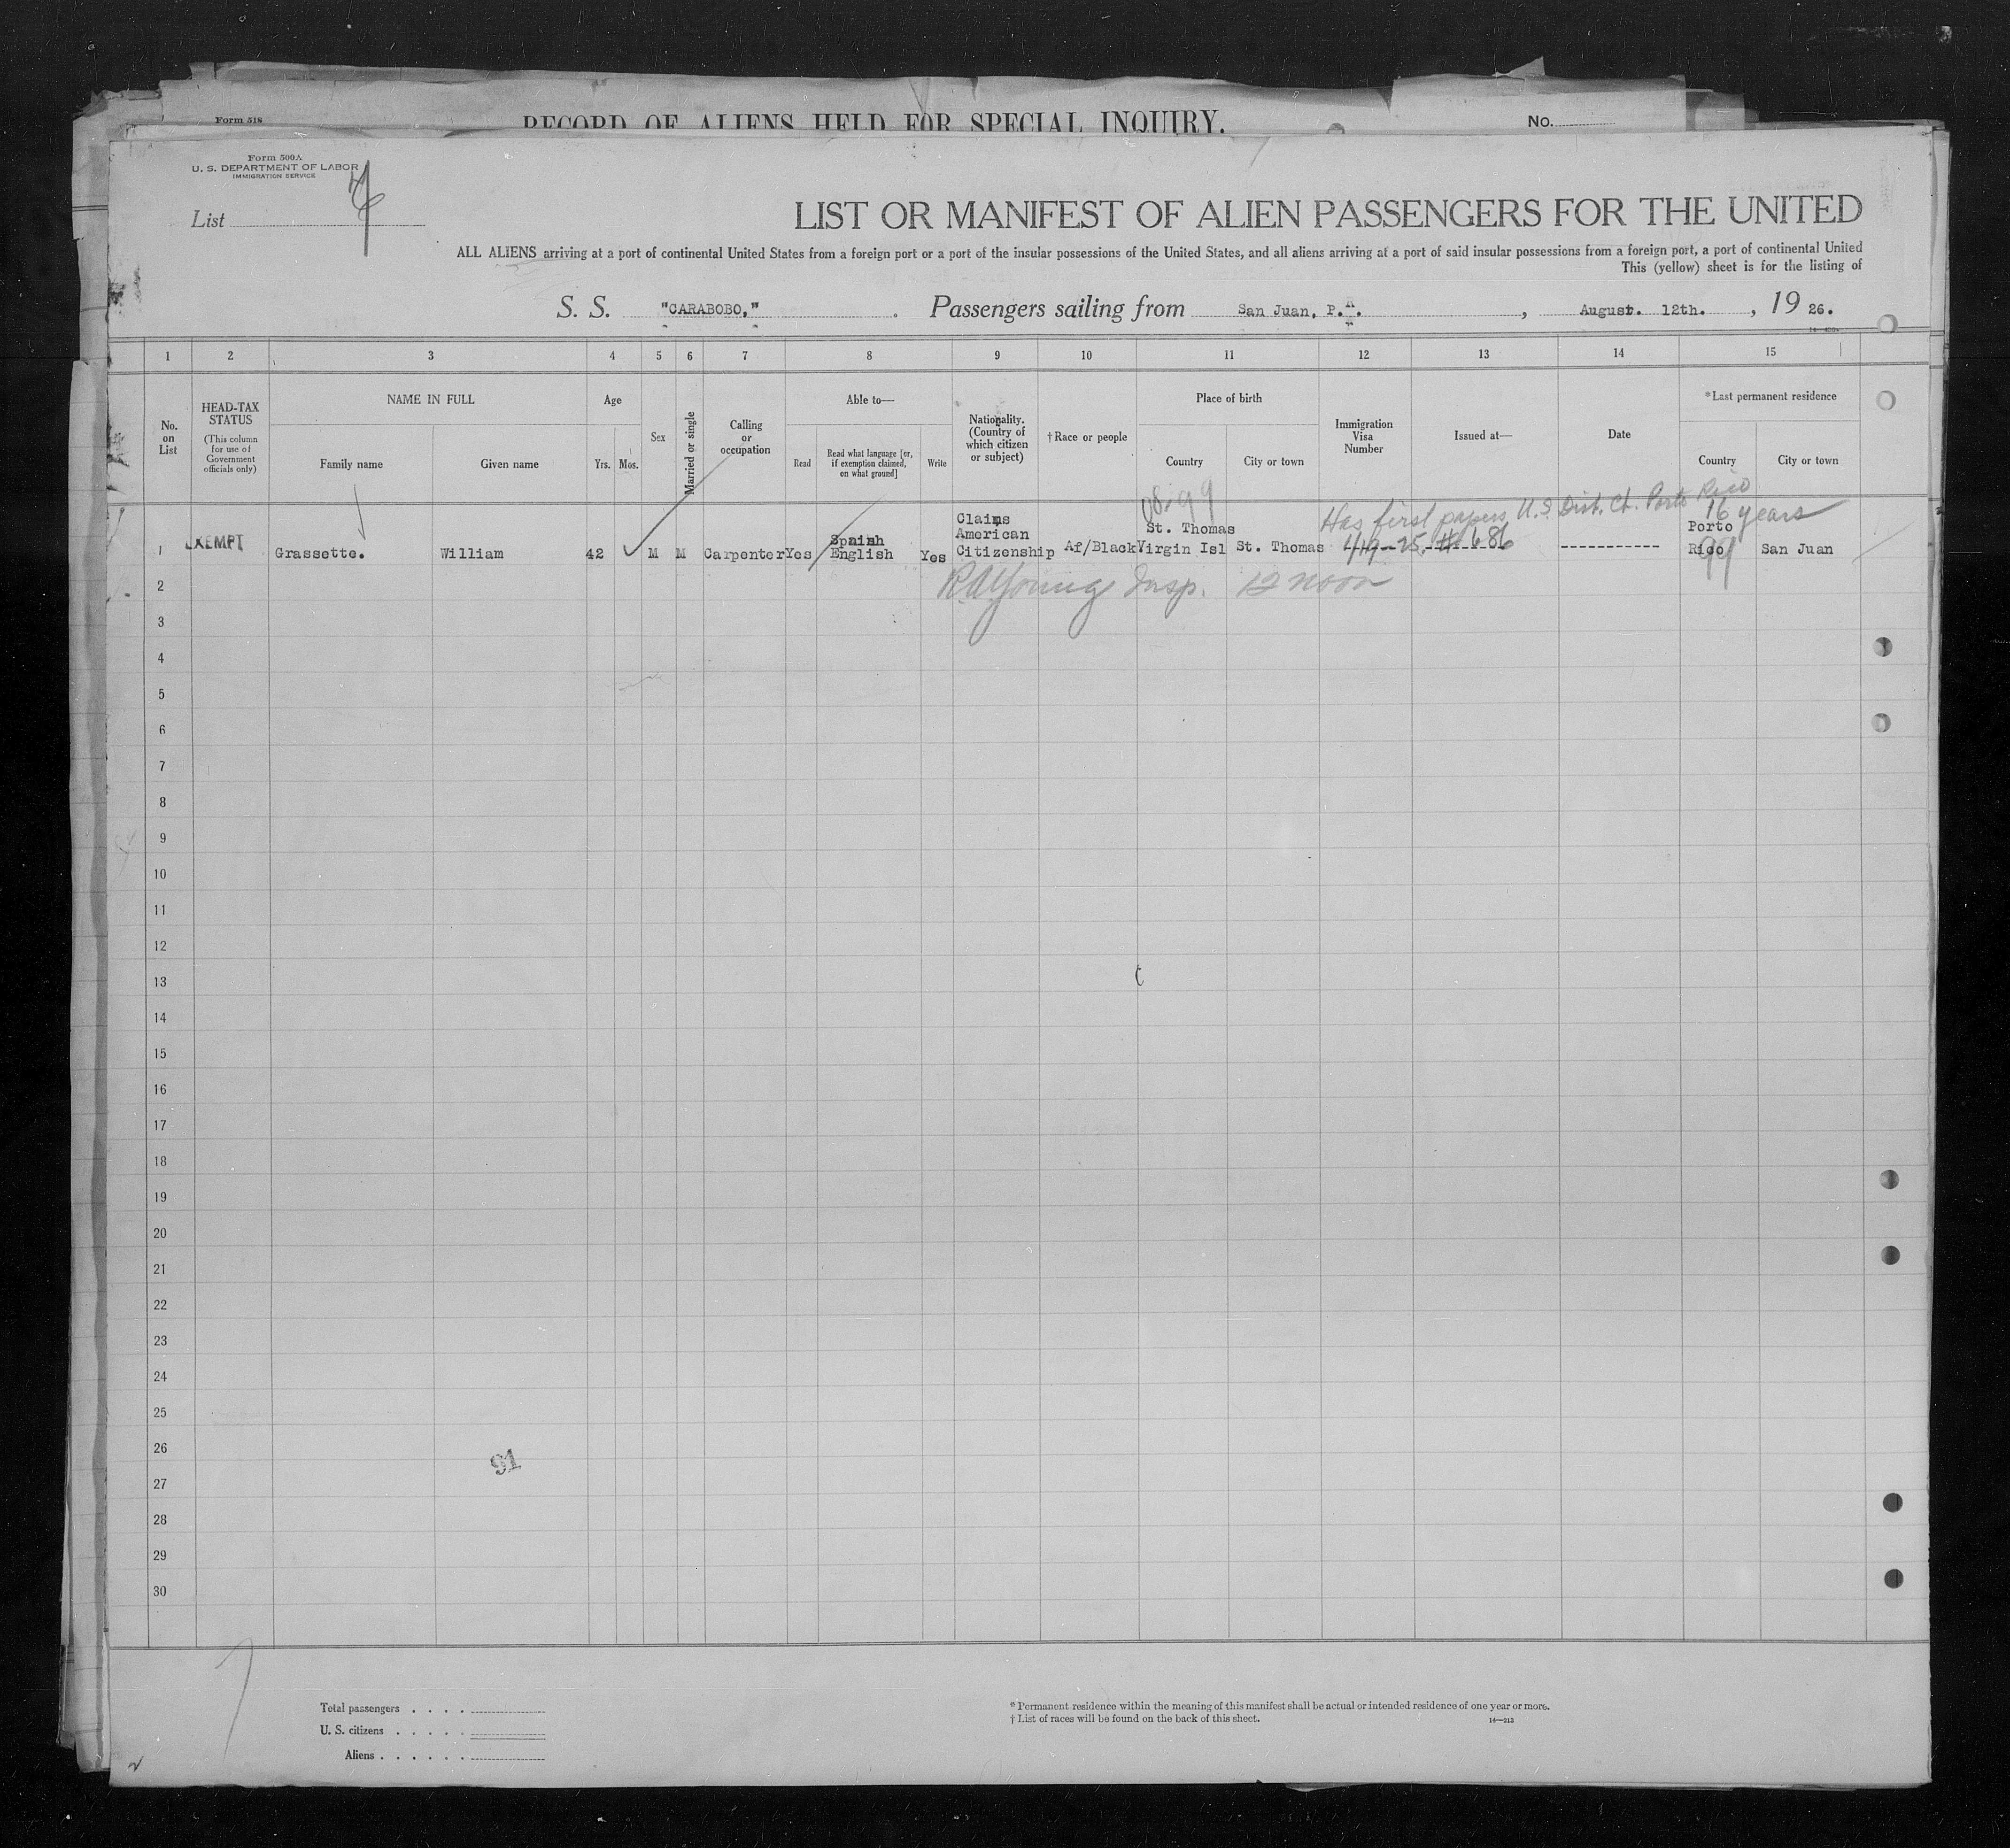 Form 518
RECORD OF ALIENS HELD FOR SPECIAL INQUIRY.
No.
Form 500A
U. S. DEPARTMENT OF LABOR
IMMIGRATION SERVICE
List
LIST OR MANIFEST OF ALIEN PASSENGERS FOR THE UNITED
ALL ALIENS arriving at a port of continental United States from a foreign port or a port of the insular possessions of the United States, and all aliens arriving at a port of said insular possessions from a foreign port, a port of continental United
This (yellow) sheet is for the listing of
S. S. "CARABOBO," . Passengers sailing from San Juan, P.R. , August. 12th. , 19 26.
1 2 3 4 5 6 7 8 9 10 11 12 13 14 15
No. on List
HEAD-TAX STATUS
(This column for use of Government officials only)
NAME IN FULL
Family name
Given name
Age
Yrs. Mos.
Sex
Married or single
Calling or occupation
Able to—
Read
Read what language [or, if exemption claimed, on what ground]
Write
Nationality. (Country of which citizen or subject)
†Race or people
Place of birth
Country
City or town
Immigration Visa Number
Issued at—
Date
*Last permanent residence
Country
City or town
08.99
Has first papers U.S. Dist. Ct. Porto Rico
16 years
Claims
St. Thomas
Porto
EXEMPT
Spainh
American
1 Grassette. William 42 M M Carpenter Yes English Yes Citizenship Af/Black Virgin Isl St. Thomas 4/19-25, # 686 ----------- Rico San Juan
99
2 RAYoung Insp. 12 noon
3
4
5
6
7
8
9
10
11
12
13
14
15
16
17
18
19
20
21
22
23
24
25
26
91
27
28
29
30
Total passengers . . . .
U. S. citizens . . . . .
Aliens . . . . . .
* Permanent residence within the meaning of this manifest shall be actual or intended residence of one year or more.
† List of races will be found on the back of this sheet.
14—213